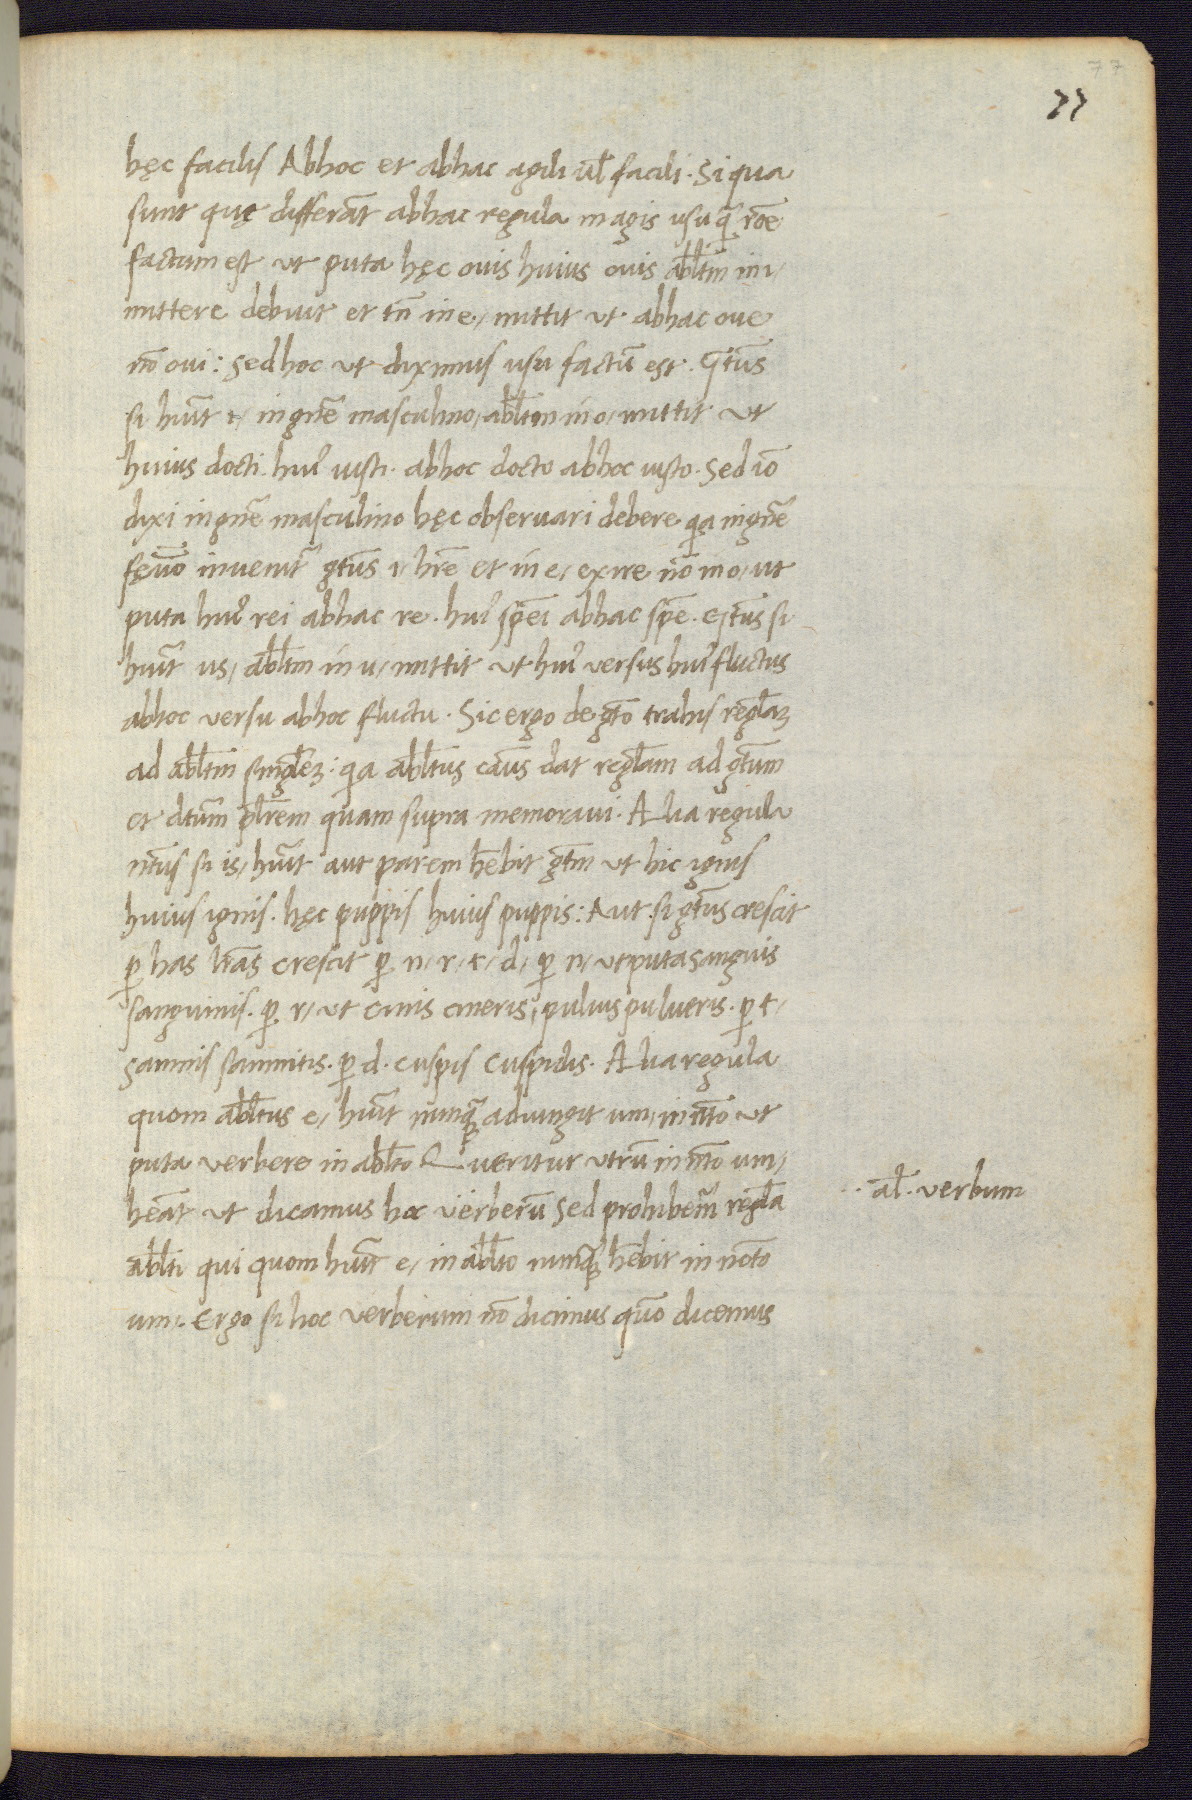 77
77
hęc facilis Abhoc et abhac agili ul̄ facili. Si qua
sunt quę differāt abhac regula magis usu q̄ rōe
factum est ut puta hęc ovis huius ovis abl̄tm in i/
mittere debuit et tn̄ in e/ mittit ut abhac ove
nō ovi: Sed hoc ut diximus usu factū est. Gt̄us
si huīt i/ in gn̄e masculino/ abl̄tm in o/ mittit ut
huius docti. hui᾽ iusti. abhoc docto abhoc iusto. Sed iō
dixi in gn̄e masculino hęc observari debere q̄a in gn̄e
fęīo invenit̄ gt̄us i/ hr̄e et in e/ exire nō in o/ ut
puta hui᾽ rei abhac re. hui᾽ sp̄ei abhac sp̄e. Gt̄us si
huīt us/ abl̄tm in u/ mittit ut hui᾽ versus hui᾽ fluctus
abhoc versu abhoc fluctu. Sic ergo de gt̄o trahis regl̄aꝫ
ad abl̄tm singl̄eꝫ: q̄a abl̄tus cāus dat regl̄am ad gt̄um
et dt̄um pl̄rem quam supra memoravi. Alia regula
nt̄us si is/ huīt aut parem hēbit gt̄m ut hic ignis
huius ignis. hęc puppis huius puppis: Aut si gt̄us crescit
ꝑ has lr̄as crescit ꝑ n/ r/ t/ d/ ꝑ n/ ut puta sanguis
sanguinis. ꝑ r/ ut cinis cineris, pulvis pulveris. ꝑ t/
samnis samnitis. ꝑ d. cuspis cuspidis. Alia regula
quom abl̄tus e/ huīt nunq̄ adiungit um/ in nt̄o ut
puta verbere in abl̄to Queritur utrū in nt̄o um/
hēat ut dicamus hoc verberū Sed prohibem᾽ regl̄a
abl̄ti qui quom huīt e/ in abl̄to nunq̄ hēbit in noto
um/. Ergo si hoc verberum nō dicimus quō dicemus
·· al̄. verbum